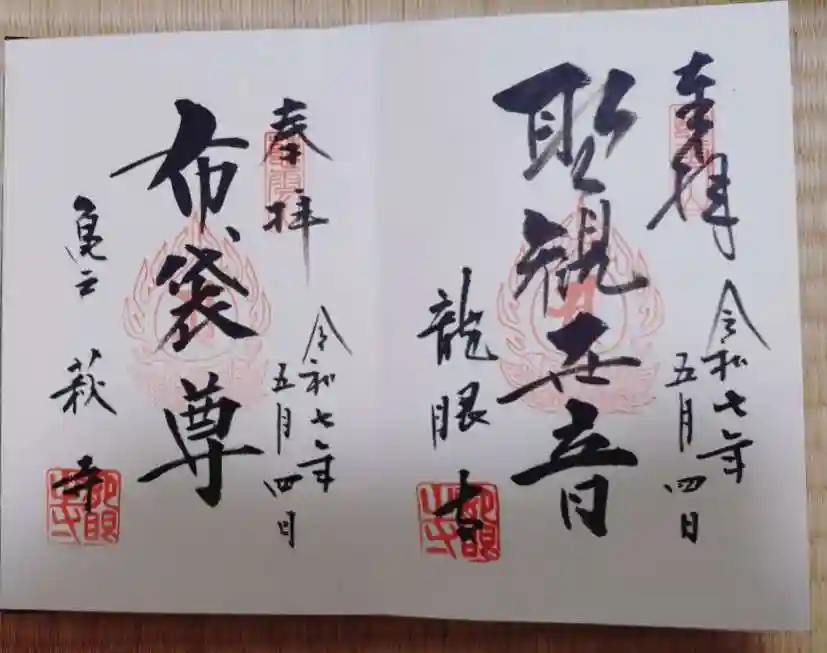 奉拝
令和七年
五月四日
聖観世音
龍眼寺
奉拝
令和七年
五月四日
布袋尊
亀戸
萩寺